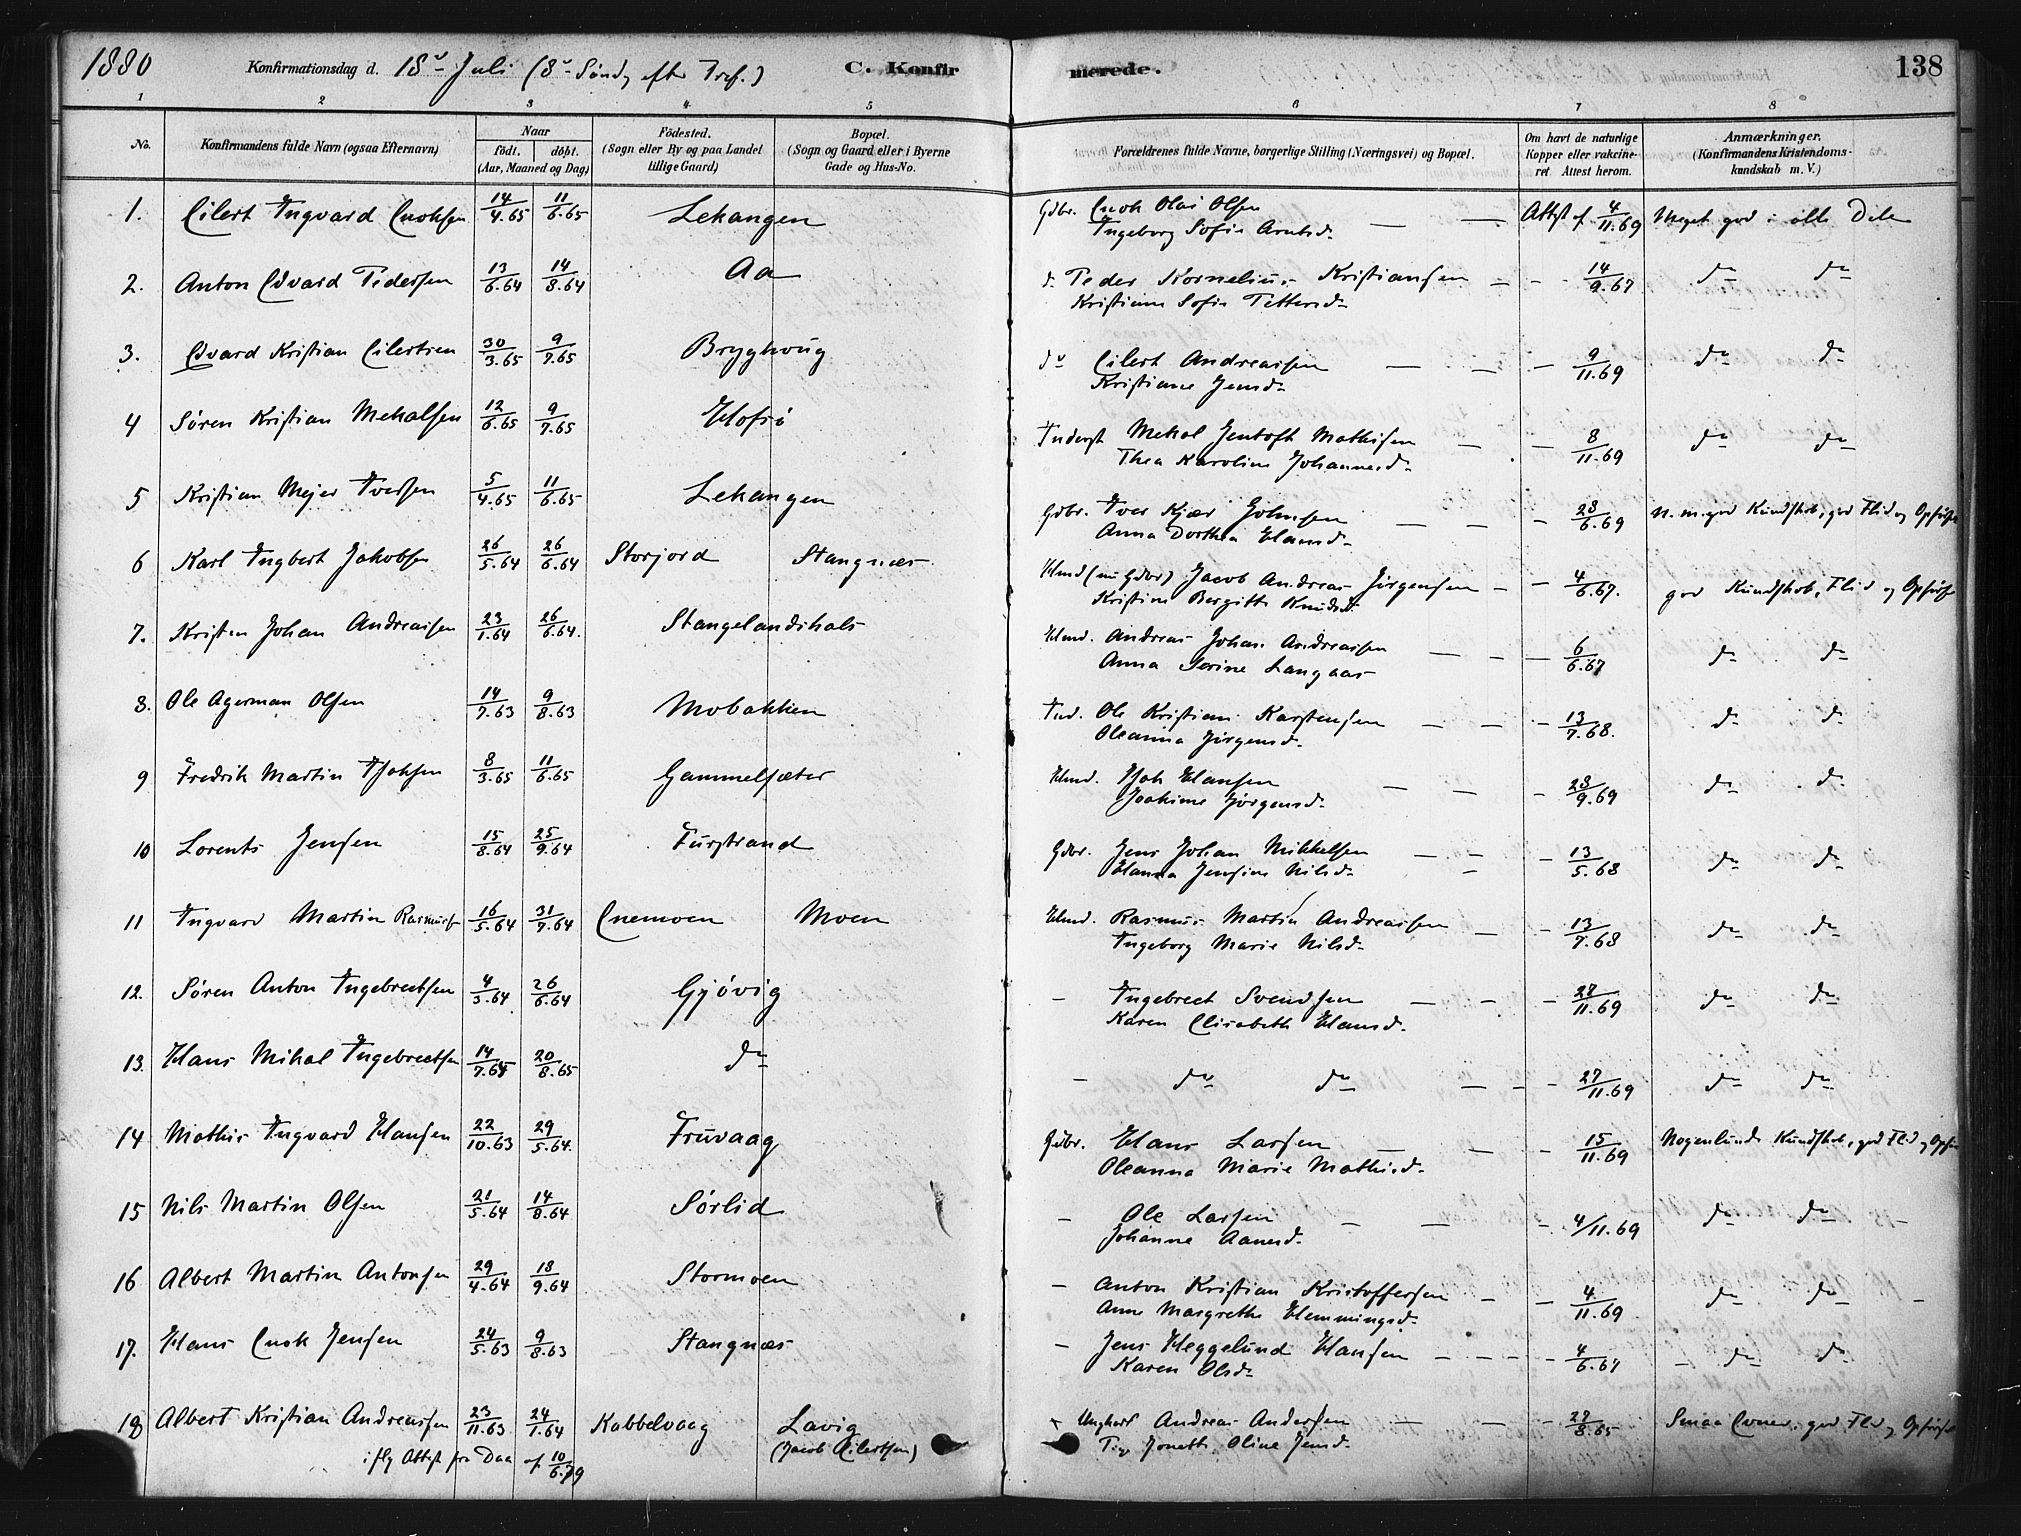 1880 Konfirmationsdag d. 18de Juli (8de Sønd. efter Tref.) C. Konfirmerede. 138
1 2 3 4 5 6 7 8
No. Konfirmandens fulde Navn (ogsaa Efternavn) Naar født. døbt. (Aar, Maaned og Dag) Fødested. (Sogn eller By og paa Landet tillige Gaard) Bopæl. (Sogn og Gaard eller i Byerne Gade og Hus-No. Forældrenes fulde Navne, borgerlige Stilling (Næringsvei) og Bopæl. Om havt de naturlige Kopper eller vakcineret. Attest herom. Anmærkninger. (Konfirmandens Kristendomskundskab m. V.)
1. Eilert Ingvard Enoksen 14/4.65 11/6.65 Lekangen Gdbr. Enok Olai Olsen — Attest af 4/11.69 Meget god i alle Dele
Ingeborg Sofie Arntsd.
2. Anton Edvard Pedersen 13/6.64 14/8.64 Aa d. Peder Kornelius Kristiansen — - 14/9.67 do do
Kristiane Sofie Pettersd.
3. Edvard Kristian Eilertsen 30/3.65 9/7.65 Bryghoug do Eilert Andreassen — — - 9/11.69 do do
Kristiane Jensd.
4 Søren Kristian Mekalsen 12/6.65 9/7.65 Hofsø Inderst Mekal Jentoft Mathisen — - 8/11.69 do do
Thea Karoline Johannesd.
5 Kristian Mejer Iversen 5/4.65 11/6.65 Lekangen Gdbr. Iver Kjær Johnsen — — - 28/6.69 N. m. god Kundskab, god Flid og Opførsel
Anna Dorthea Hansd.
6 Karl Ingbert Jakobsen 26/5.64 26/6.64 Storjord Stangnæs Hmd (nu Gdbr) Jacob Andreas Jørgensen — - 4/6.67. god Kundskab, Flid og Opførsel
Kristine Bergitte Knudsd.
7. Kristen Johan Andreassen 23/1.64 26/6.64. Stangelandshals Hmd. Andreas Johan Andreassen — — — 6/6.67 do do
Anna Serine Langaas
8. Ole Agerman Olsen 14/7.63 9/8.63 Mobakken Ind. Ole Kristian Karstensen — — - 13/7.68. do do
Oleanna Jørgensd.
9 Fredrik Martin Isaksen 8/3.65 11/6.65 Gammelsæter Hmd. Isak Hansen — — - 28/9.69 do do
Joakime Jørgensd.
10 Lorents Jensen 15/8.64 25/9.64 Furstrand Gdbr. Jens Johan Mikkelsen — — - 13/5.68 do do
Hanna Jensine Nilsd.
11 Ingvard Martin Rasmuss. 16/5.64 31/7.64 Enemoen Moen Hmd. Rasmus Martin Andreassen — - 13/7.68 do do
Ingeborg Marie Nilsd.
12. Søren Anton Ingebrectsen 4/3.64 26/6.64 Gjøvig - Ingebrect Svendsen — — - 27/11.69 do do
Karen Elisabeth Hansd.
13. Hans Mikal Ingebrectsen 14/7.65 20/8.65 do - do do — — - 27/11.69 do do
14 Mathis Ingvard Hansen 22/10.63 29/5.64. Fruvaag Gdbr. Hans Larsen — — - 15/11.69 Nogenlunde Kundskab, god Flid og Opførs.
Oleanna Marie Mathisd.
15 Nils Martin Olsen 21/5.64 14/8.64 Sørlid - Ole Larsen — — - 4/11.69 do do -
Johanna Aanesd.
16 Albert Martin Antonsen 29/4.64 18/9.64 Stormoen - Anton Kristian Kristoffersen — — 4/11.69 do do -
Anne Margrethe Hemmingsd.
17. Hans Enok Jensen 24/5.63 9/8.63 Stangnæs - Jens Heggelund Hansen — - - - 4/6.67 - do do
Karen Olsd.
18 Albert Kristian Andreassen 23/11.63 24/7.64 Kabbelvaag Lavig Ungkarl Andreas Andersen — — - 28/8.65 Smaa Evner, god Flid og Opførsel
ifølg Attest fra Daa af 10/6.79 (Jacob Eilertsen) Pig. Joneth. Oline Jensd.